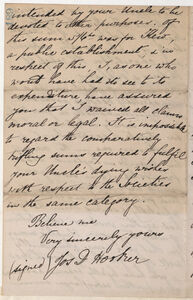 intended by your Uncle to be
devoted to other purposes. Of
this sum £ was for Kew,
a public establishment, in
respect of this I, as one who
wont have had to see to
expenditure have assured
you that I waived all claims
moral or legal. It is impossible
to regard the comparatively
trifling sums required to fulfil
your Uncle's dying wishes
with respect to the Societies
in the same category.
Believe me
Very sincerely yours
(signed) Jos D Hooker